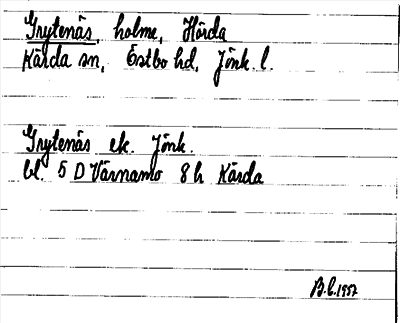 Grytenäs, holme, Hörda
Kärda sn, Östbo hd, Jönk. l.
Grytenäs ek. Jönk.
bl. 5 D Värnamo 8 h Kärda
1957